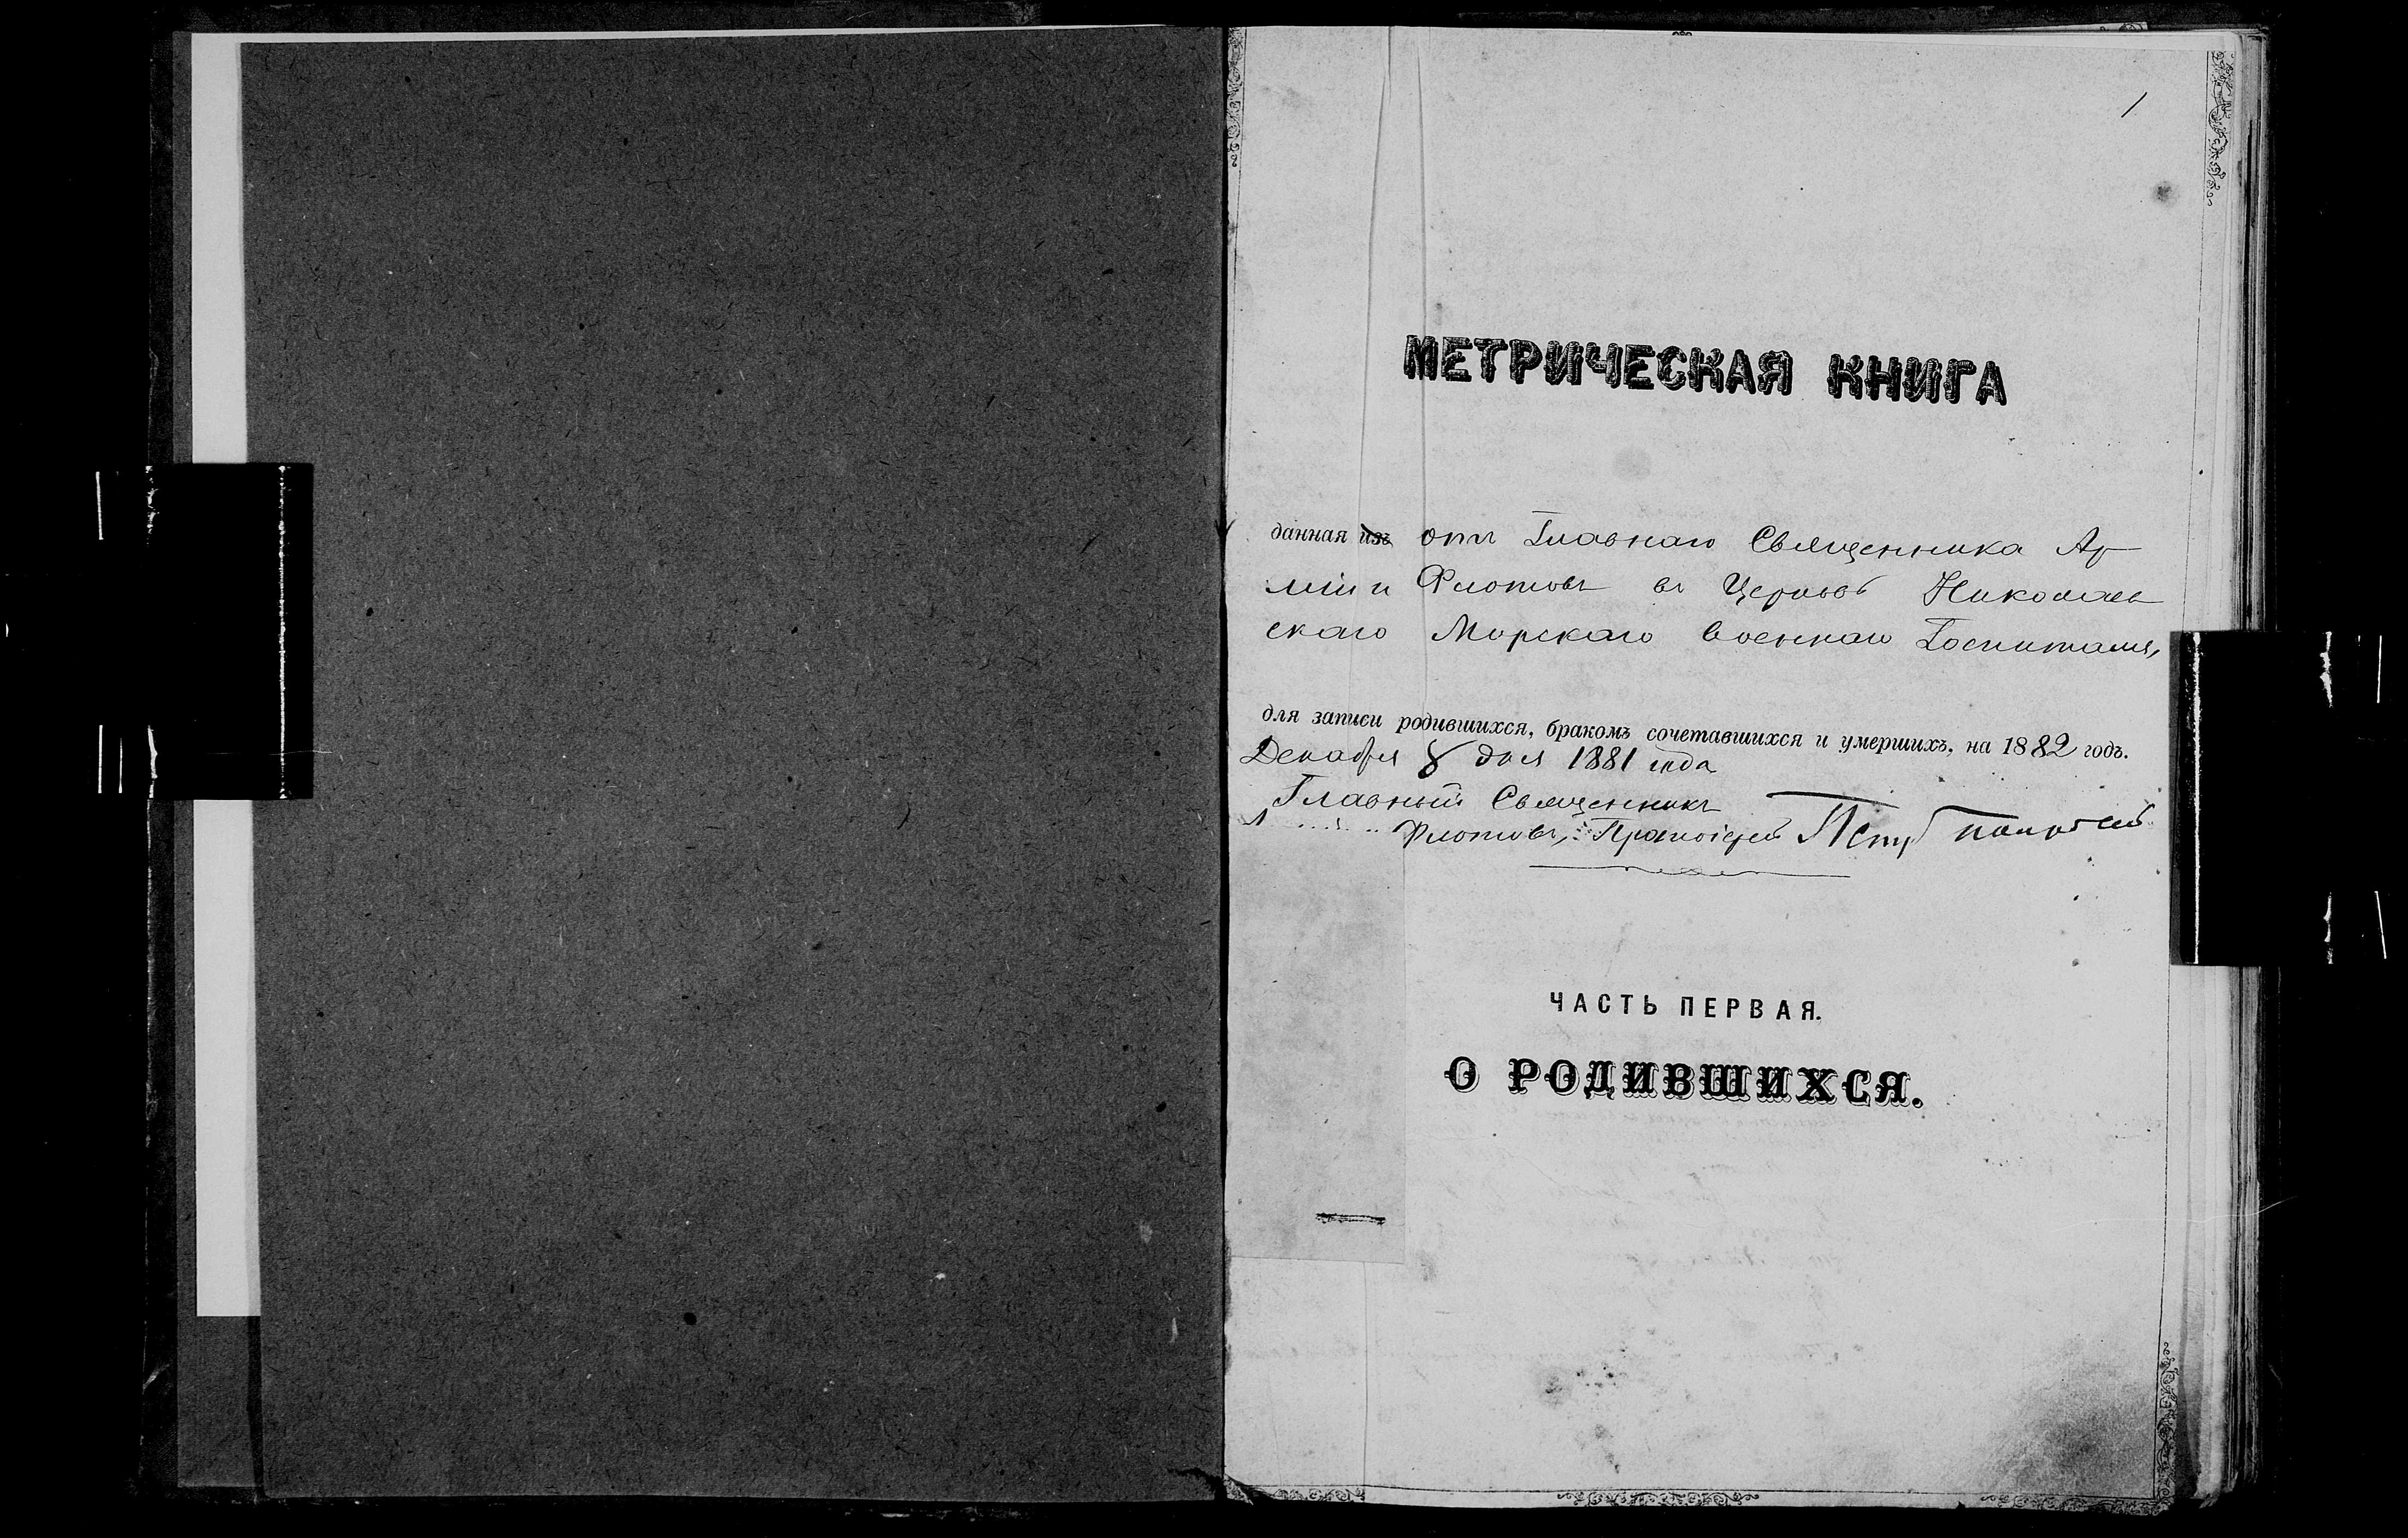 1
МЕТРИЧЕСКАЯ КНИГА
данная изъ отъ Главнаго Священника Ар-
міи и Флотовъ въ Церковь Николаев
скаго Морскаго военнаго Госпиталя,
для записи родившихся, бракомъ сочетавшихся и умершихъ, на 1882 годъ.
Декабря 8 дня 1881 года
Главный Священникъ
Флотовъ, Протоіерей Петръ
ЧАСТЬ ПЕРВАЯ.
О РОДИВШИХСЯ.